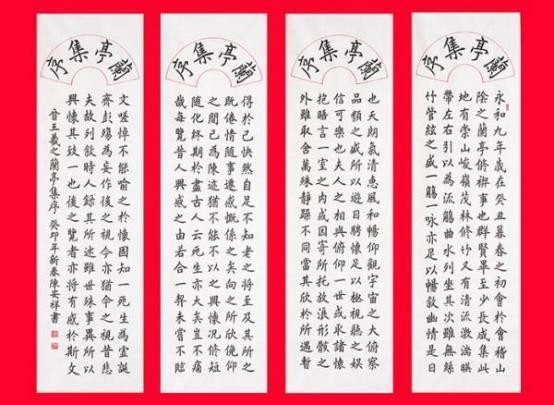 蘭亭集序
永和九年歲在癸丑暮春之初會於會稽山
陰之蘭亭脩禊事也群賢畢至少長咸集此
地有崇山峻嶺茂林修竹又有清流激湍暎
帶左右引以為流觴曲水列坐其次雖無絲
竹管絃之盛一觴一咏亦足以暢敘幽情是日
蘭亭集序
也天朗氣清惠風和暢仰觀宇宙之大俯察
品類之盛所以遊目騁懷足以極視聽之娛
信可樂也夫人之相與俯仰一世或取諸懷
抱晤言一室之內或因寄所托放浪形骸之
外雖取舍萬殊靜躁不同當其欣於所遇暫
蘭亭集序
得於己快然自足不知老之將至及其所之
既倦情隨事遷感慨係之矣向之所欣俛仰
之間已為陳迹猶不能不以之興懷況修短
隨化終期於盡古人云死生亦大矣豈不痛
哉每覽昔人興感之由若合一契未嘗不臨
蘭亭集序
文嗟悼不能喻之於懷固知一死生為虛誕
齊彭殤為妄作後之視今亦猶今之視昔悲
夫故列敘時人錄其所述雖世殊事異所以
興懷其致一也後之覽者亦將有感於斯文
晉王羲之蘭亭集序 癸卯年新春陳安祥書